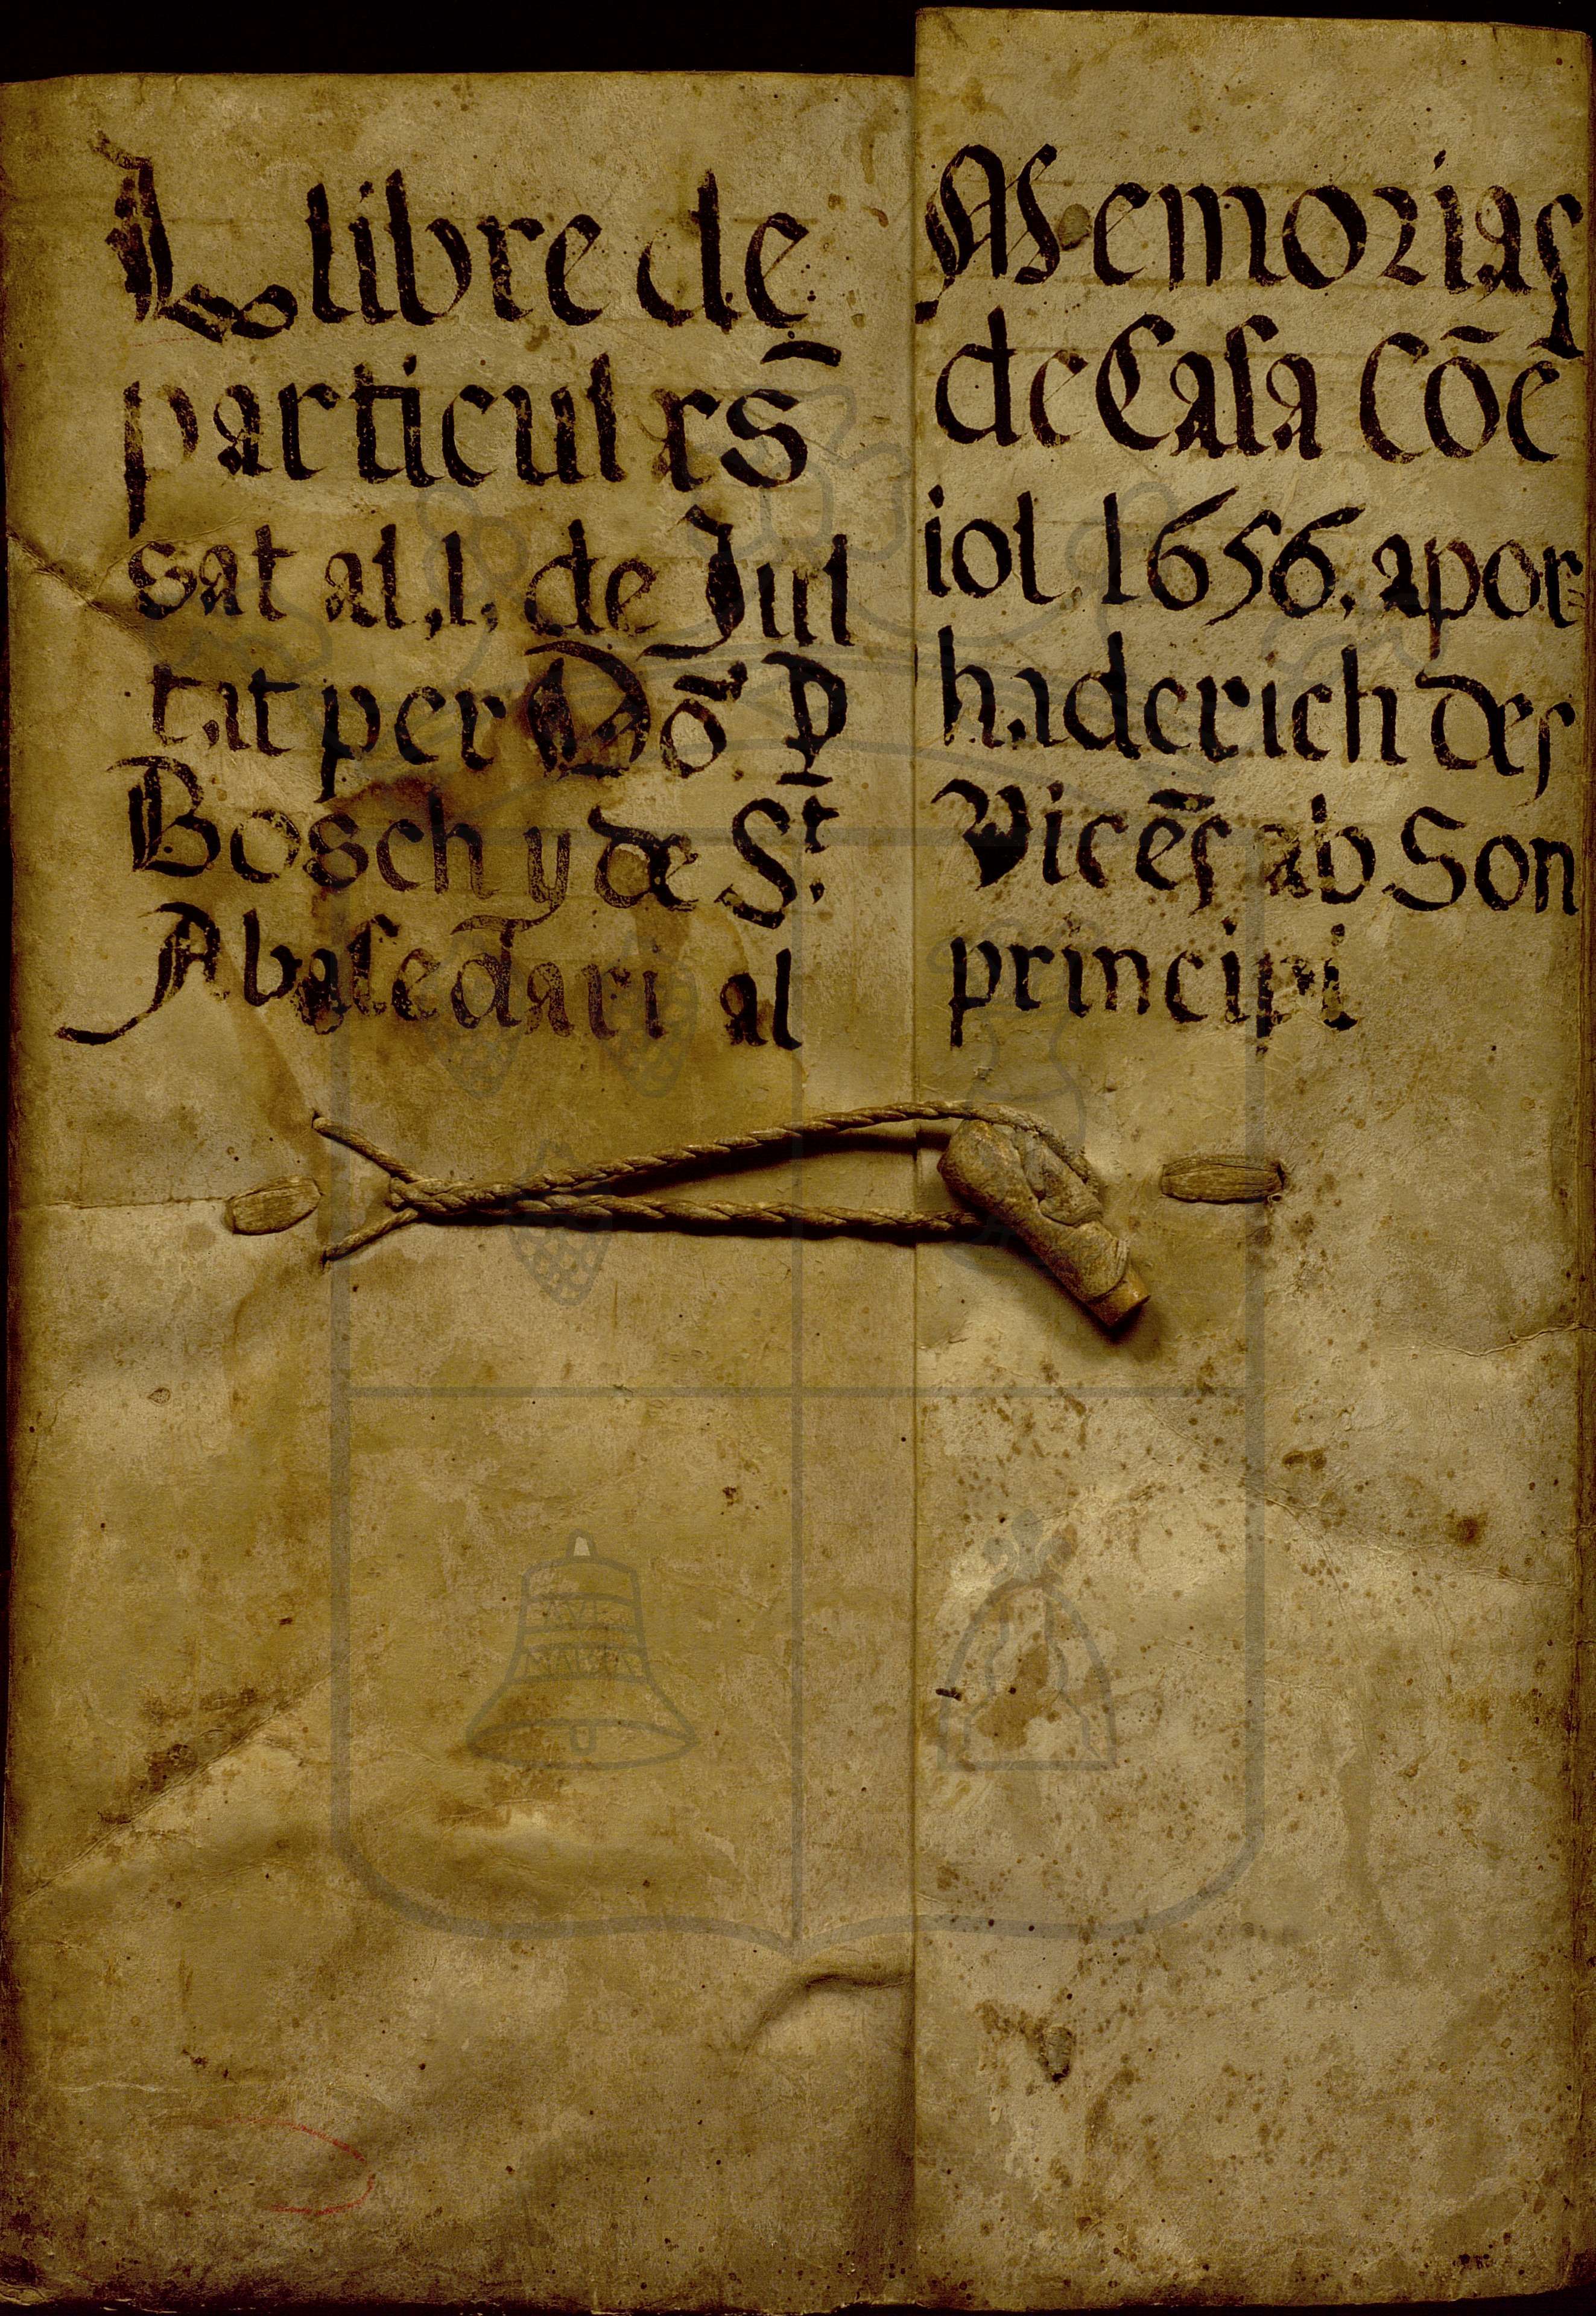 Llibre de Memorias
particulars̄ de Casa Cōē
sat al .1. de Jul iol 1656. apor=
tat per Dō P haderich des
Bosch y de S.t Vicēs ab Son
Abasedari al principi
AVE
MARIA